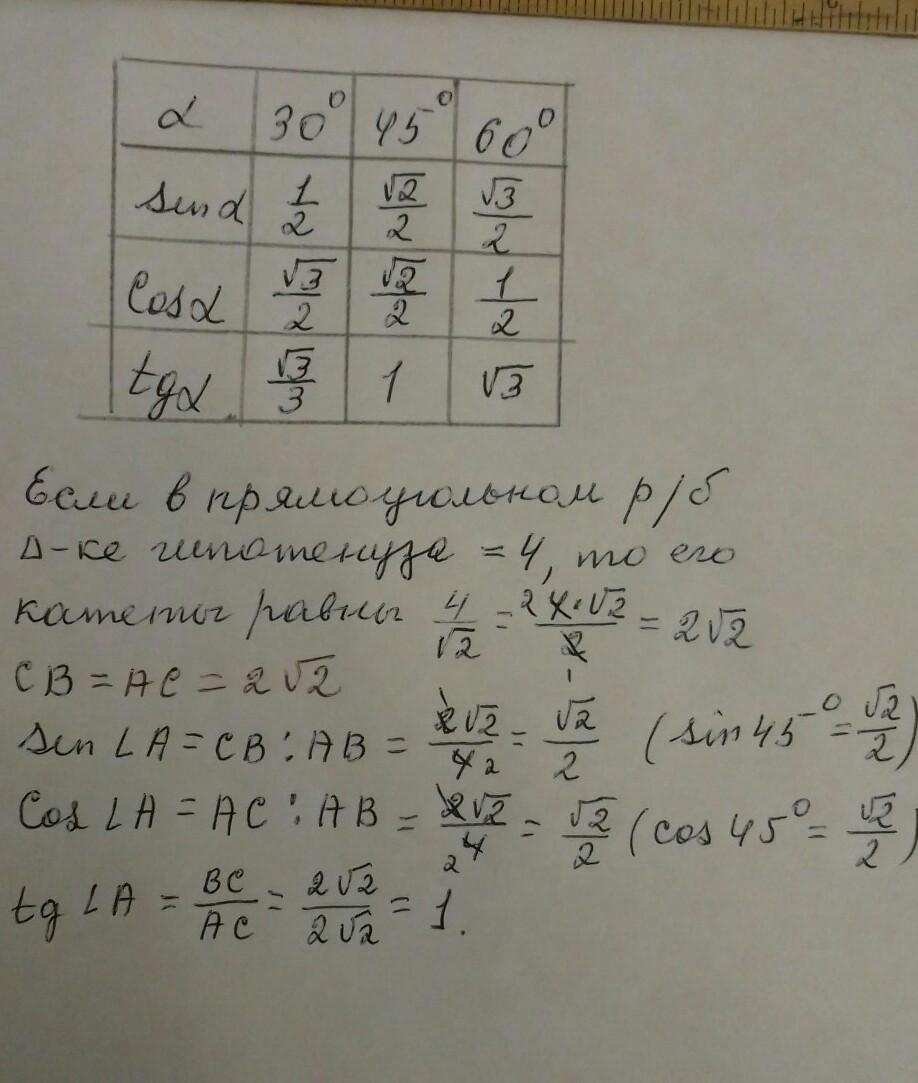 α 30° 45° 60°
sin α 1/2 √2/2 √3/2
Cos α √3/2 √2/2 1/2
tg α √3/3 1 √3
Если в прямоугольном р/б
Δ-ке гипотенуза = 4, то его
катеты равны 4/√2 = 2 4·√2/2 1 = 2√2
CB = AC = 2√2
Sin ∠A = CB : AB = 1 2√2/4 2 = √2/2 (sin 45° = √2/2)
Cos ∠A = AC : AB = 1 2√2/2 4 = √2/2 (cos 45° = √2/2)
tg ∠A = BC/AC = 2√2/2√2 = 1.